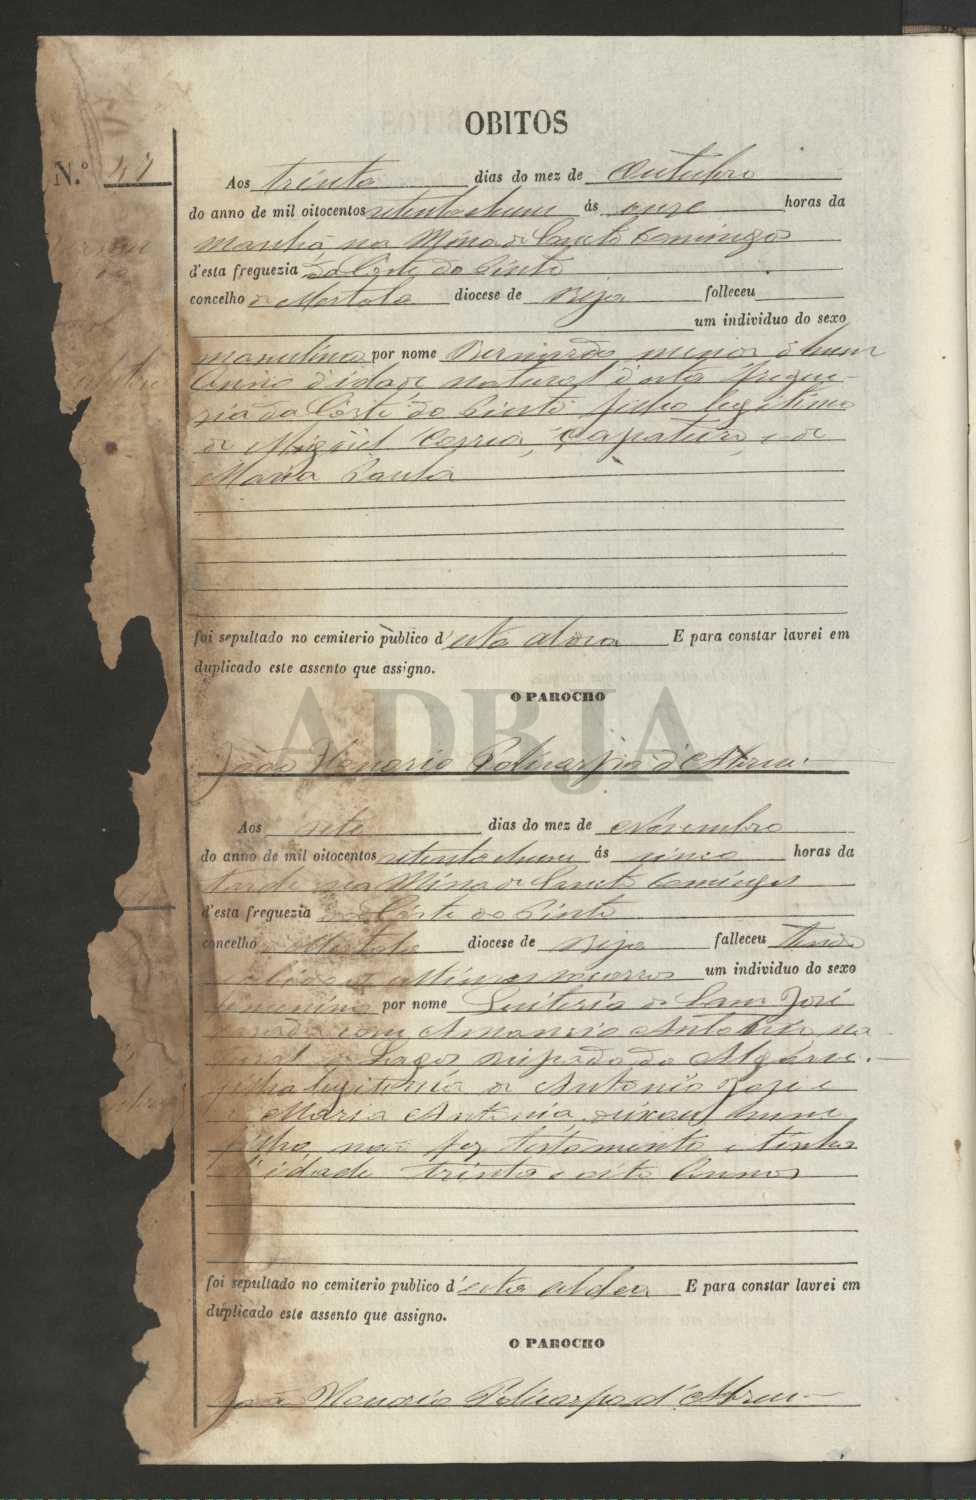 OBITOS
N.º 47
Aos trinta dias do mez de Outubro
do anno de mil oitocentos setenta e hum ás onze horas da
manhã na Mina de Sancto Domingos
d'esta freguezia da Côrte do Pinto
concelho de Mertola diocese de Beja falleceu
um individuo do sexo
masculino por nome Bernardo menor d'hum
anno d'idade natural d'esta fregue-
zia da Côrte do Pinto filho legitimo
de Miguel Correia, çapateiro, e de
Maria Paula
foi sepultado no cemiterio publico d'esta aldeia E para constar lavrei em
duplicado este assento que assigno.
O PAROCHO
ADBJA
João Policarpo d'Abreu
Aos sete dias do mez de Novembro
do anno de mil oitocentos setenta e hum ás cinco horas da
tarde na Mina de Sancto Domingos
d'esta freguezia da Côrte do Pinto
concelho de Mertola diocese de Beja falleceu tendo
recebido os ultimos socorros um individuo do sexo
femenino por nome Quiteria de Sam José
casada com Amancio Antonio, na-
tural de Lagos Bispado do Algarve.
filha legitima de Antonio José e
de Maria Antonia, deixou hum
filho, não fez testamento e tinha
d'idade trinta e oito annos
foi sepultado no cemiterio publico d'esta aldeia E para constar lavrei em
duplicado este assento que assigno.
O PAROCHO
João Policarpo d'Abreu